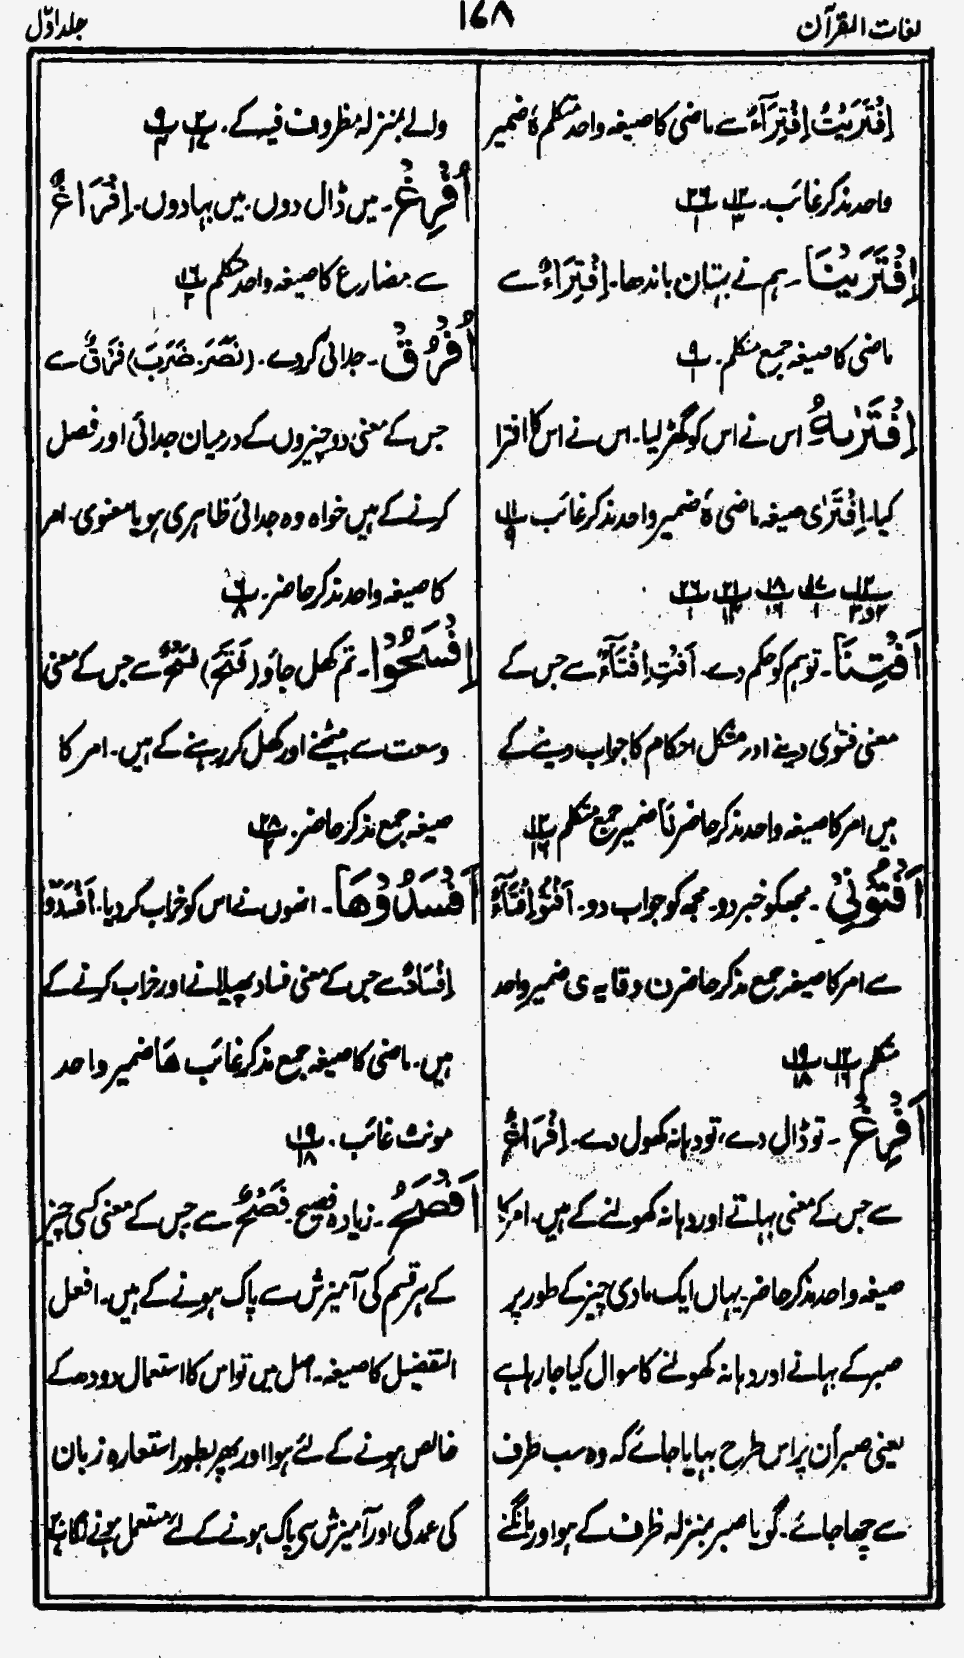 لغات القرآن
۱۶۸
جلد اوّل
اِفْتَرَیْتُ اِفْتِرَآءٌ سے ماضی کا صیغہ واحد متکلم ہٗ ضمیر
واحد مذکر غائب۔ پ۱۲/۳ پ۲۶/۱
اِفْتَرَیْنَا۔ ہم نے بہتان باندھا۔ اِفْتِرَاءٌ سے
ماضی کا صیغہ جمع متکلم۔ پ۹/۱
اِفْتَرٰىهُ اس نے اس کو گھڑ لیا۔ اس نے اس کا افترا
کیا۔ اِفْتَرٰی صیغہ ماضی ہٗ ضمیر واحد مذکر غائب پ۱۱/۹
پ۱۲/۲و۳ پ۱۷/۱ پ۱۸/۱۶ پ۲۱/۱۴ پ۲۶/۱
اَفْتِنَا۔ تو ہم کو حکم دے۔ اَفْتِ اِفْتَآءٌ سے جس کے
معنی فتوٰی دینے اور مشکل احکام کا جواب دینے کے
ہیں امر کا صیغہ واحد مذکر حاضر نَا ضمیر جمع متکلم پ۱۲/۱۶
اَفْتُوْنِیْ۔ مجھکو خبر دو۔ مجھ کو جواب دو۔ اَفْتُوْ اِفْتَآءٌ
سے امر کا صیغہ جمع مذکر حاضر ن وقایہ ی ضمیر واحد
متکلم پ۱۲/۱۶ پ۱۹/۱۸
اَفْرِغْ۔ تو ڈال دے، تو دہانہ کھول دے۔ اِفْرَاغٌ
سے جس کے معنی بہانے اور دہانہ کھولنے کے ہیں۔ امر کا
صیغہ واحد مذکر حاضر۔ یہاں ایک مادی چیز کے طور پر
صبر کے بہانے اور دہانہ کھولنے کا سوال کیا جا رہا ہے
یعنی صبر اُن پر اس طرح بہایا جائے کہ وہ سب طرف
سے چھا جائے۔ گویا صبر بمنزلہ ظرف کے ہو اور مانگنے
والے بمنزلہ مظروف فیہ کے۔ پ۲/۱۷ پ۹/۴
اُفْرِغْ۔ میں ڈال دوں۔ میں بہا دوں۔ اِفْرَاغٌ
سے مضارع کا صیغہ واحد متکلم پ۱۶/۲
اُفْرُقْ۔ جدائی کر دے۔ (نَصَرَ۔ ضَرَبَ) فَرْقٌ سے
جس کے معنی دو چیزوں کے درمیان جدائی اور فصل
کرنے کے ہیں خواہ وہ جدائی ظاہری ہو یا معنوی۔ امر
کا صیغہ واحد مذکر حاضر۔ پ۶/۸
اِفْسَحُوْا۔ تم کھل جاؤ (فَتَحَ) فَسْحٌ سے جس کے معنی
وسعت سے بیٹھنے اور کھل کر رہنے کے ہیں۔ امر کا
صیغہ جمع مذکر حاضر۔ پ۲۸/۲
اَفْسَدُوْهَا۔ انہوں نے اس کو خراب کر دیا۔ اَفْسَدُوْا
اِفْسَادٌ سے جس کے معنی فساد پھیلانے اور خراب کرنے کے
ہیں۔ ماضی کا صیغہ جمع مذکر غائب هَا ضمیر واحد
مونث غائب۔ پ۱۹/۱۸
اَفْصَحُ۔ زیادہ فصیح۔ فَصْحٌ سے جس کے معنی کسی چیز
کے ہر قسم کی آمیزش سے پاک ہونے کے ہیں۔ افعل
التفضیل کا صیغہ۔ اصل میں تو اس کا استعمال دودھ کے
خالص ہونے کے لئے ہوا اور پھر بطور استعارہ زبان
کی عمدگی اور آمیزش سے پاک ہونے کے لئے مستعمل ہونے لگا